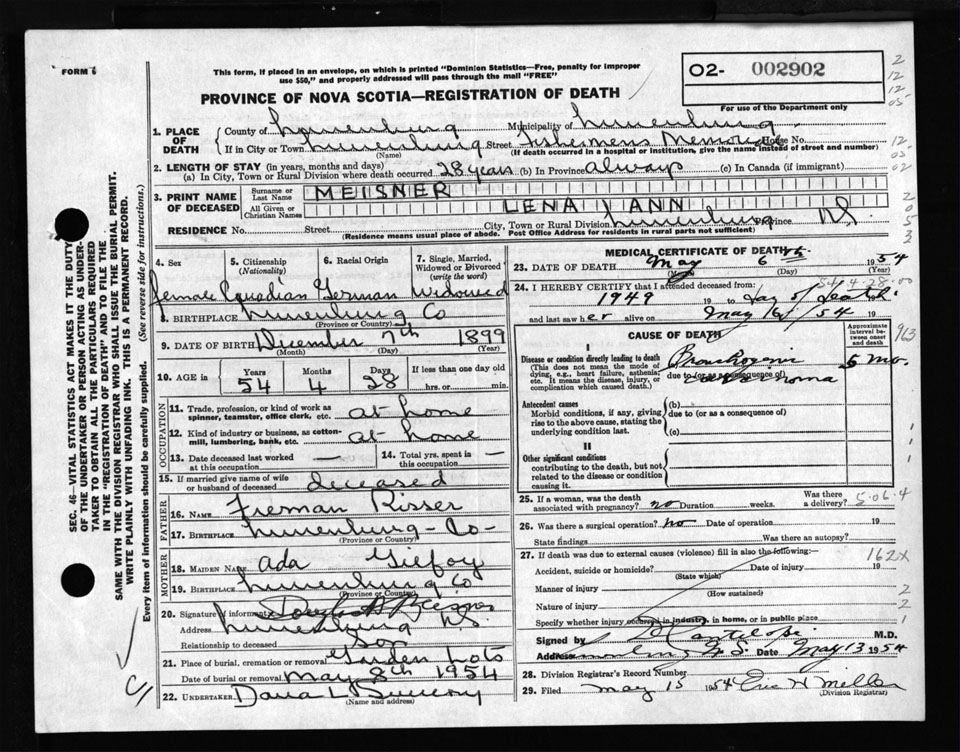 FORM 6
This form, if placed in an envelope, on which is printed "Dominion Statistics—Free, penalty for improper
use $50," and properly addressed will pass through the mail "FREE"
PROVINCE OF NOVA SCOTIA—REGISTRATION OF DEATH
02- 002902
For use of the Department only
2
12
12
05
1. PLACE OF DEATH
County of Lunenburg Municipality of Lunenburg
If in City or Town Lunenburg Street Fishermens Memorial House No.
(Name) (If death occurred in a hospital or institution, give the name instead of street and number)
12
05
02
2. LENGTH OF STAY (in years, months and days)
(a) In City, Town or Rural Division where death occurred 28 years (b) In Province always (c) In Canada (if immigrant)
3. PRINT NAME OF DECEASED
Surname or Last Name MEISNER
All Given or Christian Names LENA ANN
RESIDENCE No. Street City, Town or Rural Division Lunenburg Province N.S.
(Residence means usual place of abode. Post Office Address for residents in rural parts not sufficient)
2
0
5
3
4. Sex 5. Citizenship (Nationality) 6. Racial Origin 7. Single, Married, Widowed or Divorced (write the word)
female Canadian German Widowed
8. BIRTHPLACE Lunenburg Co
(Province or Country)
9. DATE OF BIRTH December 7th 1899
(Month) (Day) (Year)
10. AGE in Years Months Days If less than one day old
54 4 28 hrs. or min.
OCCUPATION
11. Trade, profession, or kind of work as spinner, teamster, office clerk, etc. at home
12. Kind of industry or business, as cotton-mill, lumbering, bank, etc. at home
13. Date deceased last worked at this occupation — 14. Total yrs. spent in this occupation —
15. If married give name of wife or husband of deceased deceased
FATHER
16. NAME Freman Risser
17. BIRTHPLACE Lunenburg - Co -
(Province or Country)
MOTHER
18. MAIDEN NAME Ada Gilfoy
19. BIRTHPLACE Lunenburg Co
(Province or Country)
20. Signature of informant
Address Lunenburg N.S.
Relationship to deceased Son
21. Place of burial, cremation or removal Garden Lots
Date of burial or removal May 8th 1954
22. UNDERTAKER Dana L Sweeny
(Name and address)
MEDICAL CERTIFICATE OF DEATH
23. DATE OF DEATH May 6th 1954
(Month) (Day) (Year)
24. I HEREBY CERTIFY that I attended deceased from:
1949 19 to day of death
and last saw her alive on May 6/54 19
CAUSE OF DEATH
Approximate interval between onset and death
I
Disease or condition directly leading to death
(This does not mean the mode of dying, e.g., heart failure, asthenia, etc. It means the disease, injury, or complication which caused death.)
(a) 5 mo.
due to (or as a consequence of)
Antecedent causes
Morbid conditions, if any, giving rise to the above cause, stating the underlying condition last.
(b)
due to (or as a consequence of)
(c)
II
Other significant conditions
contributing to the death, but not related to the disease or condition causing it.
25. If a woman, was the death associated with pregnancy? no Duration weeks. Was there a delivery?
26. Was there surgical operation? no Date of operation 19
State findings Was there an autopsy?
27. If death was due to external causes (violence) fill in also the following:—
162X
Accident, suicide or homicide? Date of injury 19
(State which)
Manner of injury
(How sustained)
Nature of injury
Specify whether injury occurred in industry, in home, or in public place
Signed by M.D.
Address Date May 13 1954
28. Division Registrar's Record Number
29. Filed May 15 1954 Eric H Miller
(Division Registrar)
SEC. 46—VITAL STATISTICS ACT MAKES IT THE DUTY
OF THE UNDERTAKER OR PERSON ACTING AS UNDER-
TAKER TO OBTAIN ALL THE PARTICULARS REQUIRED
IN THE "REGISTRATION OF DEATH" AND TO FILE THE
SAME WITH THE DIVISION REGISTRAR WHO SHALL ISSUE THE BURIAL PERMIT.
WRITE PLAINLY WITH UNFADING INK. THIS IS A PERMANENT RECORD.
Every item of information should be carefully supplied. (See reverse side for instructions.)